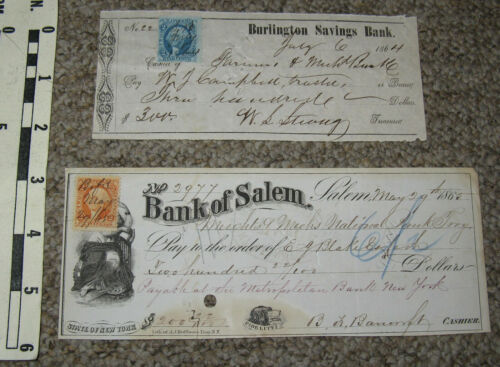 0
1
2
3
4
5
6
No. 22
Burlington Savings Bank.
July 6 1864
Cashier of & Bank
Pay W. J. Campbell, or Bearer
Three hundred Dollars
$ 300. W. L. Strong Treasurer
No 2977
Bank of Salem,
Salem, May 29th
National Bank Troy
Pay to the order of E
Two hundred /100 Dollars
Payable at the Metropolitan Bank New York
$200
STATE OF NEW YORK
FIDELITY
B. F. Bancroft CASHIER.